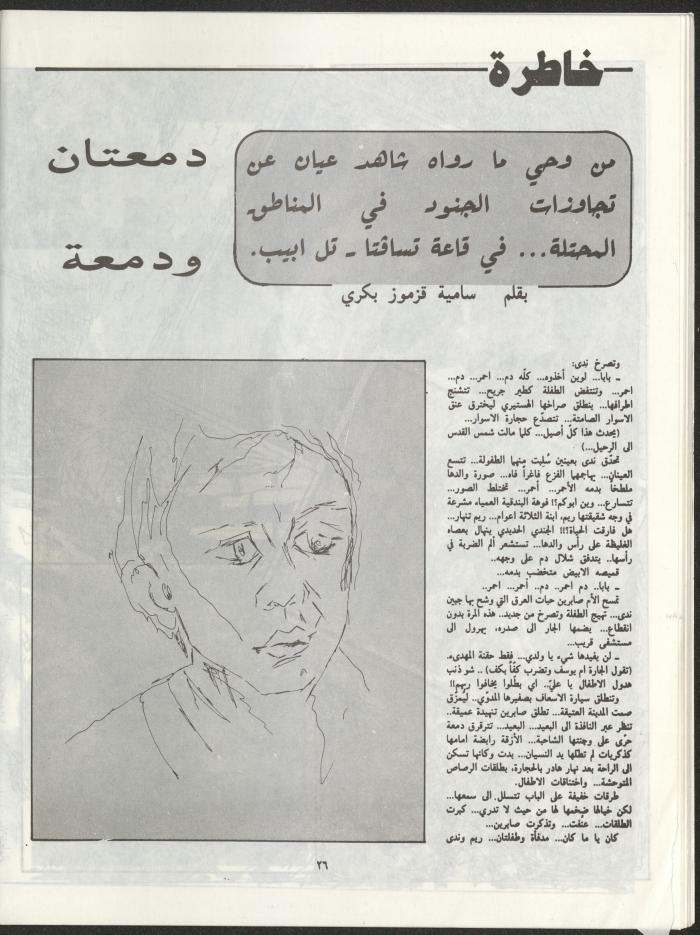 خاطرة
دمعتان
ودمعة
من وحي ما رواه شاهد عيان عن
تجاوزات الجنود في المناطق
المحتلة... في قاعة تسافتا ـ تل ابيب.
بقلم سامية قزموز بكري
وتصرخ ندى:
ـ بابا... لوين أخذوه... كلّه دم... احمر... دم...
احمر... وتنتفض الطفلة كطير جريح... تتشنج
اطرافها... ينطلق صراخها الهستيري ليخترق عنق
الاسوار الصامتة... تتصدّع حجارة الاسوار...
(يحدث هذا كلّ أصيل... كلما مالت شمس القدس
الى الرحيل...)
تحدّق ندى بعينين سُلبت منهما الطفولة... تتسع
العينان... يهاجمها الفزع فاغراً فاه... صورة والدها
ملطخاً بدمه الأحمر... أحمر... تختلط الصور...
تتسارع... وين ابوكم؟! فوهة البندقية العمياء مشرعة
في وجه شقيقتها ريم، ابنة الثلاثة اعوام... ريم تنهار...
هل فارقت الحياة؟!! الجندي الحديدي ينهال بعصاه
الغليظة على رأس والدها... تستشعر ألم الضربة في
رأسها.. يتدفق شلال دم على وجهه..
قميصه الابيض متخضب بدمه...
ـ بابا.. دم احمر.. دم.. أحمر... احمر..
تمسح الأم صابرين حبات العرق التي وشح بها جبين
ندى... تهيج الطفلة وتصرخ من جديد.. هذه المرة بدون
انقطاع... يضمها الجار الى صدره، يهرول الى
مستشفى قريب...
ـ لن يفيدها شيء يا ولدي... فقط حقنة المهدىء،
(تقول الجارة ام يوسف وتضرب كفاً بكف) .. شو ذنب
هدول الاطفال يا عليّ.. اي بطّلوا يخافوا ربهم!!
وتنطلق سيارة الاسعاف بصفيرها المدوّي.. ليمزّق
صمت المدينة العتيقة... تطلق صابرين تنهيدة عميقة..
تنظر عبر النافذة الى البعيد... البعيد... تترقرق دمعة
حرّى على وجنتها الشاحبة... الأزقة رابضة امامها
كذكريات لم تطلها يد النسيان... بدت وكأنها تسكن
الى الراحة بعد نهار هادر بالحجارة، بطلقات الرصاص
المتوحشة... واختناقات الاطفال.
طرقات خفيفة على الباب تتسلل الى سمعها...
لكن خيالها ضخمها لها من حيث لا تدري... كبرت
الطلقات... عنُفت... وتذكرت صابرين...
كان يا ما كان... مدفأة وطفلتان... ريم وندى
٢٦